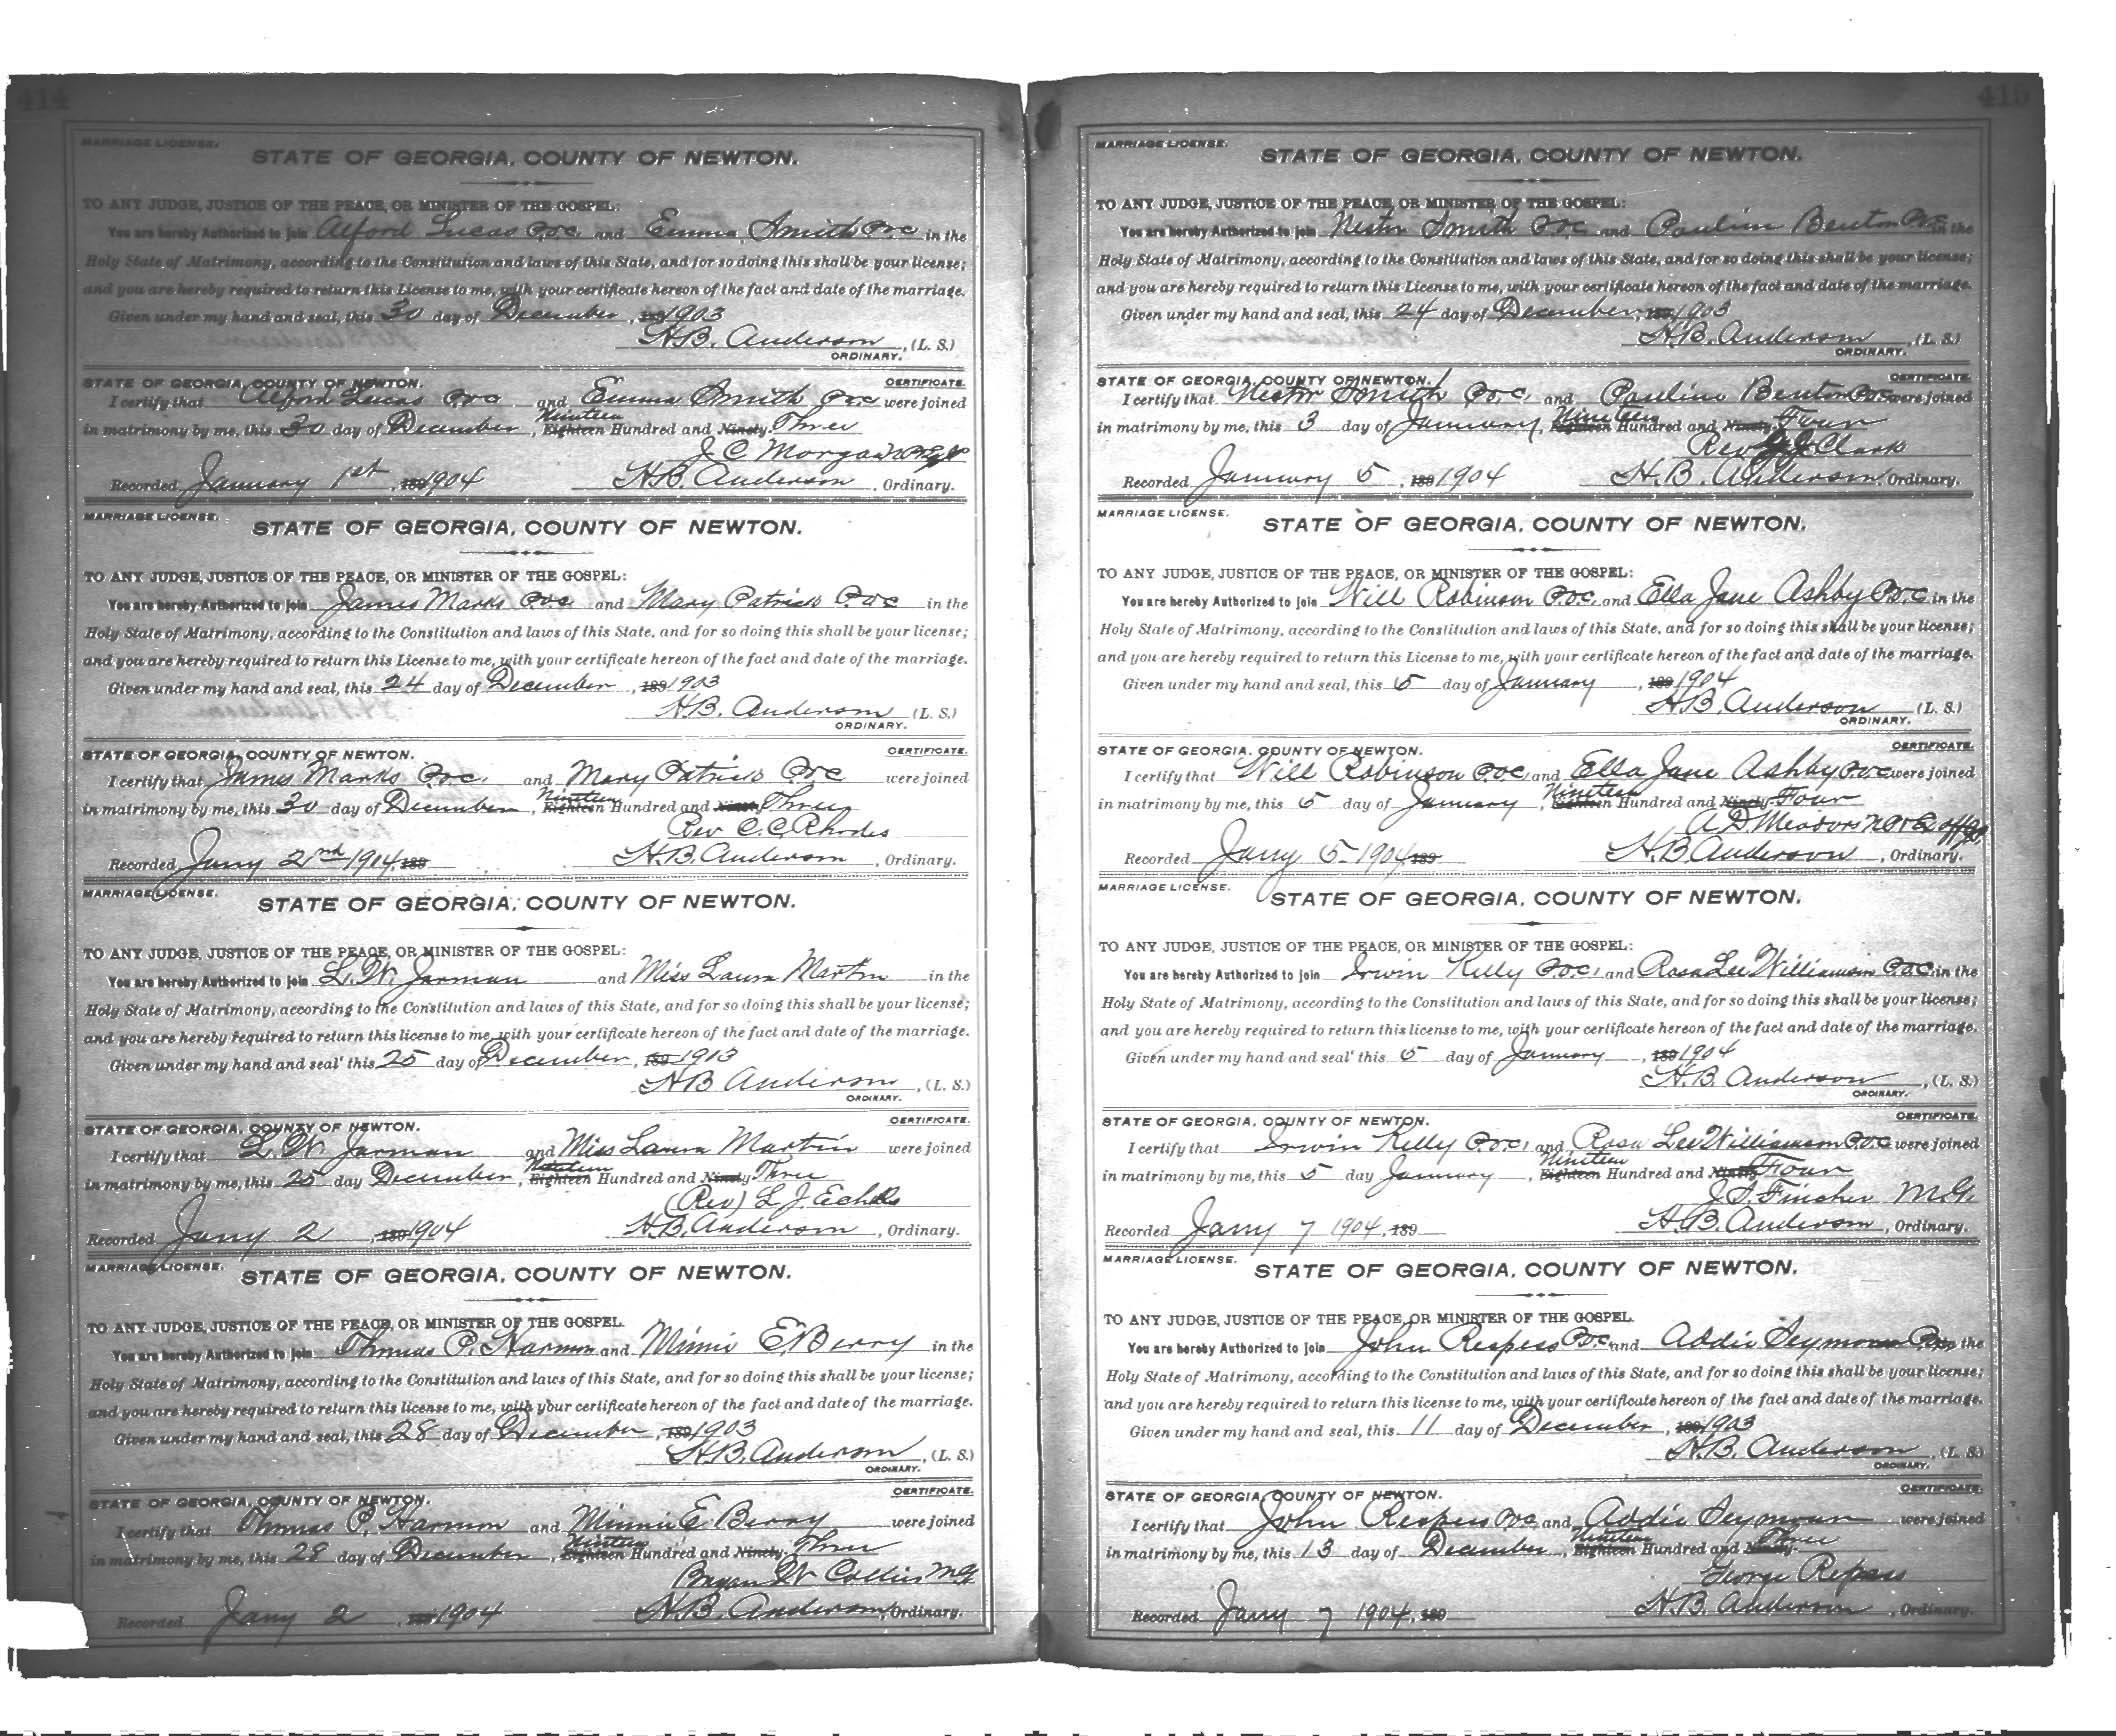 414
MARRIAGE LICENSE.
STATE OF GEORGIA, COUNTY OF NEWTON.
TO ANY JUDGE, JUSTICE OF THE PEACE, OR MINISTER OF THE GOSPEL:
You are hereby Authorized to join Alford Lucas P.O.C. and Emma Smith P.O.C in the
Holy State of Matrimony, according to the Constitution and laws of this State, and for so doing this shall be your license;
and you are hereby required to return this License to me, with your certificate hereon of the fact and date of the marriage.
Given under my hand and seal, this 30 day of December, 189 1903
H.B. Anderson, (L. S.)
ORDINARY.
STATE OF GEORGIA, COUNTY OF NEWTON. CERTIFICATE.
I certify that Alford Lucas P.O.C and Emma Smith P.O.C were joined
in matrimony by me, this 30 day of December, Eighteen Nineteen Hundred and Ninety Three
J. C. Morgan
Recorded January 1st, 189 1904 H.B. Anderson, Ordinary.
MARRIAGE LICENSE.
STATE OF GEORGIA, COUNTY OF NEWTON.
TO ANY JUDGE, JUSTICE OF THE PEACE, OR MINISTER OF THE GOSPEL:
You are hereby Authorized to join James Marks P.O.C. and Mary Patrick P.O.C in the
Holy State of Matrimony, according to the Constitution and laws of this State, and for so doing this shall be your license;
and you are hereby required to return this License to me, with your certificate hereon of the fact and date of the marriage.
Given under my hand and seal, this 24 day of December, 189 1903
H.B. Anderson (L. S.)
ORDINARY.
STATE OF GEORGIA, COUNTY OF NEWTON. CERTIFICATE.
I certify that James Marks P.O.C. and Mary Patrick P.O.C were joined
in matrimony by me, this 30 day of December, Eighteen Nineteen Hundred and Ninety Three
Rev C. C. Rhodes
Recorded Jany 2nd 1904, 189 H.B. Anderson, Ordinary.
MARRIAGE LICENSE.
STATE OF GEORGIA, COUNTY OF NEWTON.
TO ANY JUDGE, JUSTICE OF THE PEACE, OR MINISTER OF THE GOSPEL:
You are hereby Authorized to join L. W. Jarman and Miss Laura Martin in the
Holy State of Matrimony, according to the Constitution and laws of this State, and for so doing this shall be your license;
and you are hereby required to return this license to me, with your certificate hereon of the fact and date of the marriage.
Given under my hand and seal' this 25 day of December, 189 1903
H B Anderson, (L. S.)
ORDINARY.
STATE OF GEORGIA, COUNTY OF NEWTON. CERTIFICATE.
I certify that L. W. Jarman and Miss Laura Martin were joined
in matrimony by me, this 25 day December, Eighteen Nineteen Hundred and Ninety Three
(Rev) L. J.
Recorded Jany 2, 189 1904 H.B. Anderson, Ordinary.
MARRIAGE LICENSE.
STATE OF GEORGIA, COUNTY OF NEWTON.
TO ANY JUDGE, JUSTICE OF THE PEACE, OR MINISTER OF THE GOSPEL.
You are hereby Authorized to join Thomas P. Harmon and Minnie E. Berry in the
Holy State of Matrimony, according to the Constitution and laws of this State, and for so doing this shall be your license;
and you are hereby required to return this license to me, with your certificate hereon of the fact and date of the marriage.
Given under my hand and seal, this 28 day of December, 189 1903
H.B. Anderson, (L. S.)
ORDINARY.
STATE OF GEORGIA, COUNTY OF NEWTON. CERTIFICATE.
I certify that Thomas P. Harmon and Minnie E. Berry were joined
in matrimony by me, this 28 day of December, Eighteen Nineteen Hundred and Ninety, Three
W Collins M.G
Recorded Jany 2, 189 1904 H.B. Anderson, Ordinary.
415
MARRIAGE LICENSE.
STATE OF GEORGIA, COUNTY OF NEWTON.
TO ANY JUDGE, JUSTICE OF THE PEACE, OR MINISTER OF THE GOSPEL:
You are hereby Authorized to join Nestor Smith P.O.C. and Paulim Benton P.O.C in the
Holy State of Matrimony, according to the Constitution and laws of this State, and for so doing this shall be your license;
and you are hereby required to return this License to me, with your certificate hereon of the fact and date of the marriage.
Given under my hand and seal, this 24 day of December, 189 1903
H.B. Anderson, (L. S.)
ORDINARY.
STATE OF GEORGIA, COUNTY OF NEWTON. CERTIFICATE.
I certify that Nestor Smith P.O.C. and Paulim Benton P.O.C were joined
in matrimony by me, this 3 day of January, Eighteen Nineteen Hundred and Ninety Four
Rev Clark
Recorded January 5, 189 1904 H. B. Anderson, Ordinary.
MARRIAGE LICENSE.
STATE OF GEORGIA, COUNTY OF NEWTON.
TO ANY JUDGE, JUSTICE OF THE PEACE, OR MINISTER OF THE GOSPEL:
You are hereby Authorized to join Will Robinson P.O.C. and Ella Jane Ashby P.O.C in the
Holy State of Matrimony, according to the Constitution and laws of this State, and for so doing this shall be your license;
and you are hereby required to return this License to me, with your certificate hereon of the fact and date of the marriage.
Given under my hand and seal, this 5 day of January, 189 1904
H.B. Anderson (L. S.)
ORDINARY.
STATE OF GEORGIA, COUNTY OF NEWTON. CERTIFICATE.
I certify that Will Robinson P.O.C. and Ella Jane Ashby P.O.C were joined
in matrimony by me, this 5 day of January, Eighteen Nineteen Hundred and Ninety Four
A. D. Meadors
Recorded Jany 5- 1904 189 H. B Anderson, Ordinary.
MARRIAGE LICENSE.
STATE OF GEORGIA, COUNTY OF NEWTON.
TO ANY JUDGE, JUSTICE OF THE PEACE, OR MINISTER OF THE GOSPEL:
You are hereby Authorized to join Irwin Kelly P.O.C. and Rosa Lee Williamson P.O.C in the
Holy State of Matrimony, according to the Constitution and laws of this State, and for so doing this shall be your license;
and you are hereby required to return this license to me, with your certificate hereon of the fact and date of the marriage.
Given under my hand and seal' this 5 day of January, 189 1904
H. B. Anderson, (L. S.)
ORDINARY.
STATE OF GEORGIA, COUNTY OF NEWTON. CERTIFICATE.
I certify that Irwin Kelly P.O.C. and Rosa Lee Williamson P.O.C were joined
in matrimony by me, this 5 day January, Eighteen Nineteen Hundred and Ninety Four
J. S. Fincher M.G.
Recorded Jany 7 1904, 189 H.B. Anderson, Ordinary.
MARRIAGE LICENSE.
STATE OF GEORGIA, COUNTY OF NEWTON.
TO ANY JUDGE, JUSTICE OF THE PEACE, OR MINISTER OF THE GOSPEL.
You are hereby Authorized to join John Respess P.O.C and Addie Seymour in the
Holy State of Matrimony, according to the Constitution and laws of this State, and for so doing this shall be your license;
and you are hereby required to return this license to me, with your certificate hereon of the fact and date of the marriage.
Given under my hand and seal, this 11 day of December, 189 1903
H.B. Anderson, (L. S.)
ORDINARY.
STATE OF GEORGIA, COUNTY OF NEWTON. CERTIFICATE.
I certify that John Respess P.O.C. and Addie Seymour were joined
in matrimony by me, this 13 day of December, Eighteen Nineteen Hundred and Ninety Three
George Respess
Recorded Jany 7 1904, 189 H.B. Anderson, Ordinary.